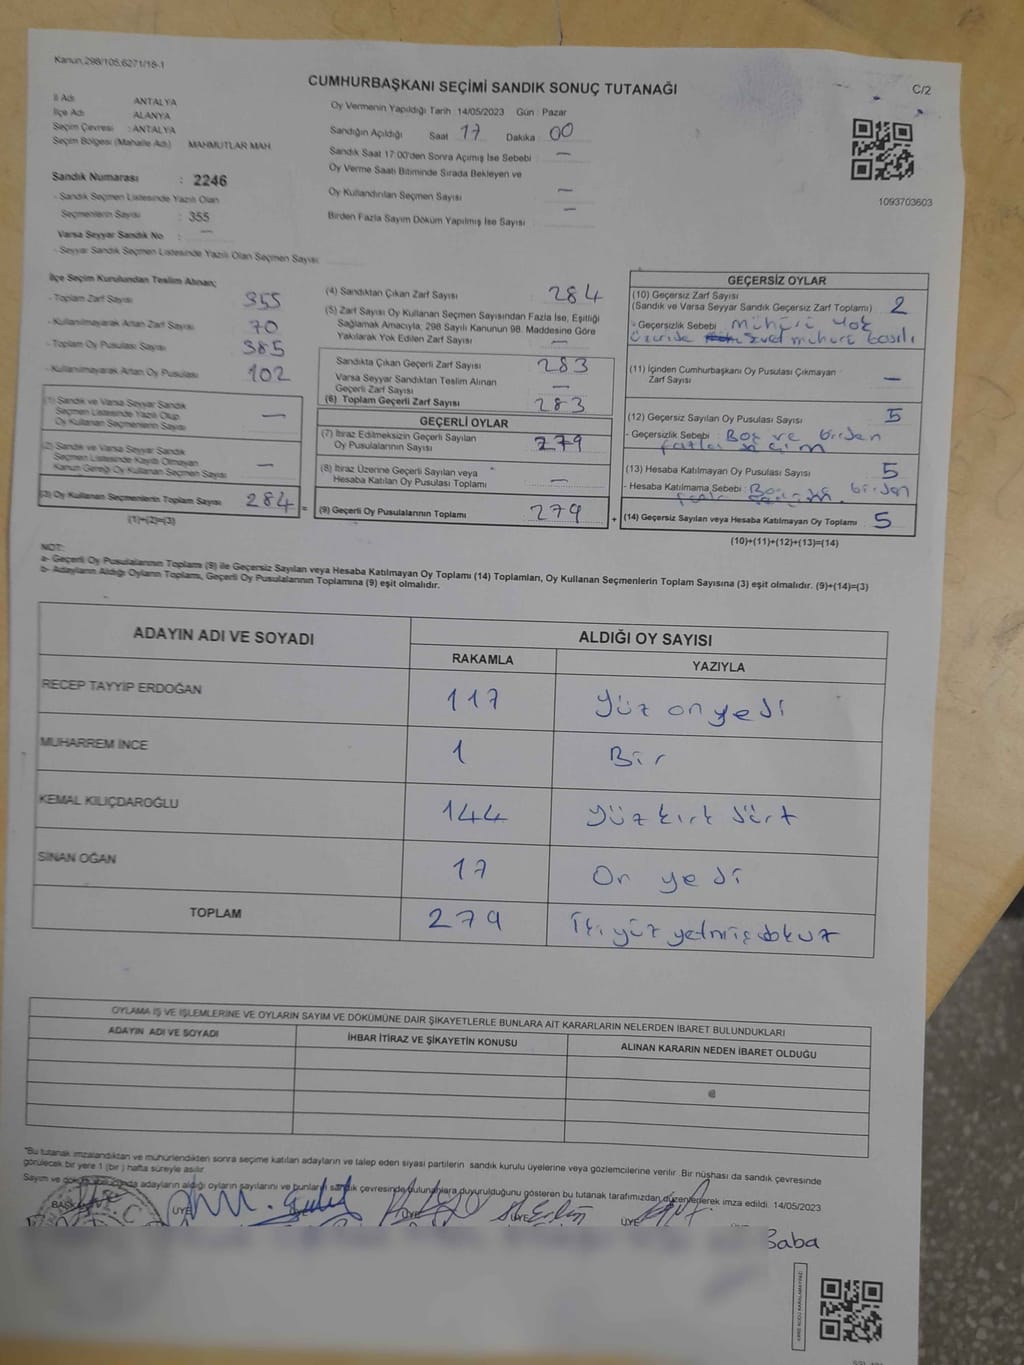 Kanun,298/105,6271/18-1
CUMHURBAŞKANI SEÇİMİ SANDIK SONUÇ TUTANAĞI
C/2
İl Adı ANTALYA
İlçe Adı ALANYA
Seçim Çevresi : ANTALYA
Seçim Bölgesi (Mahalle Adı) MAHMUTLAR MAH
Sandık Numarası : 2246
- Sandık Seçmen Listesinde Yazılı Olan
Seçmenlerin Sayısı : 355
Varsa Seyyar Sandık No : —
- Seyyar Sandık Seçmen Listesinde Yazılı Olan Seçmen Sayısı
Oy Vermenin Yapıldığı Tarih 14/05/2023 Gün : Pazar
Sandığın Açıldığı Saat 17 Dakika 00
Sandık Saat 17:00'den Sonra Açımış İse Sebebi —
Oy Verme Saati Bitiminde Sırada Bekleyen ve
Oy Kullandırılan Seçmen Sayısı —
Birden Fazla Sayım Döküm Yapılmış İse Sayısı —
1093703603
İlçe Seçim Kurulundan Teslim Alınan;
- Toplam Zarf Sayısı 355
- Kullanılmayarak Artan Zarf Sayısı 70
- Toplam Oy Pusulası Sayısı 385
- Kullanılmayarak Artan Oy Pusulası 102
(1) Sandık ve Varsa Seyyar Sandık
Seçmen Listesinde Yazılı Olup
Oy Kullanan Seçmenlerin Sayısı —
(2) Sandık ve Varsa Seyyar Sandık
Seçmen Listesinde Kayıtlı Olmayan
Kanun Gereği Oy Kullanan Seçmen Sayısı —
(3) Oy Kullanan Seçmenlerin Toplam Sayısı 284 =
(1)+(2)=(3)
(4) Sandıktan Çıkan Zarf Sayısı : 284
(5) Zarf Sayısı Oy Kullanan Seçmen Sayısından Fazla İse, Eşitliği
Sağlamak Amacıyla, 298 Sayılı Kanunun 98. Maddesine Göre
Yakılarak Yok Edilen Zarf Sayısı —
Sandıkta Çıkan Geçerli Zarf Sayısı 283
Varsa Seyyar Sandıktan Teslim Alınan
Geçerli Zarf Sayısı —
(6) Toplam Geçerli Zarf Sayısı 283
GEÇERLİ OYLAR
(7) İtiraz Edilmeksizin Geçerli Sayılan
Oy Pusulalarının Sayısı 279
(8) İtiraz Üzerine Geçerli Sayılan veya
Hesaba Katılan Oy Pusulası Toplamı —
(9) Geçerli Oy Pusulalarının Toplamı 279 +
GEÇERSİZ OYLAR
(10) Geçersiz Zarf Sayısı
(Sandık ve Varsa Seyyar Sandık Geçersiz Zarf Toplamı) 2
- Geçersizlik Sebebi mühürü yok
üzeride mühürü basılı
(11) İçinden Cumhurbaşkanı Oy Pusulası Çıkmayan
Zarf Sayısı —
(12) Geçersiz Sayılan Oy Pusulası Sayısı 5
- Geçersizlik Sebebi Boş ve birden
fazla seçim
(13) Hesaba Katılmayan Oy Pusulası Sayısı 5
- Hesaba Katılmama Sebebi birden
(14) Geçersiz Sayılan veya Hesaba Katılmayan Oy Toplamı 5
(10)+(11)+(12)+(13)=(14)
NOT:
a- Geçerli Oy Pusulasının Toplamı (9) ile Geçersiz Sayılan veya Hesaba Katılmayan Oy Toplamı (14) Toplamları, Oy Kullanan Seçmenlerin Toplam Sayısına (3) eşit olmalıdır. (9)+(14)=(3)
b- Adayların Aldığı Oyların Toplamı, Geçerli Oy Pusulalarının Toplamına (9) eşit olmalıdır.
ADAYIN ADI VE SOYADI
ALDIĞI OY SAYISI
RAKAMLA YAZIYLA
RECEP TAYYİP ERDOĞAN 117 yüz on yedi
MUHARREM İNCE 1 Bir
KEMAL KILIÇDAROĞLU 144 yüz kırk dört
SİNAN OĞAN 17 On yedi
TOPLAM 279 iki yüz yetmiş dokuz
OYLAMA İŞ VE İŞLEMLERİNE VE OYLARIN SAYIM VE DÖKÜMÜNE DAİR ŞİKAYETLERLE BUNLARA AİT KARARLARIN NELERDEN İBARET BULUNDUKLARI
ADAYIN ADI VE SOYADI
İHBAR İTİRAZ VE ŞİKAYETİN KONUSU
ALINAN KARARIN NEDEN İBARET OLDUĞU
*Bu tutanak imzalandıktan ve mühürlendikten sonra seçime katılan adayların ve talep eden siyasi partilerin sandık kurulu üyelerine veya gözlemcilerine verilir. Bir nüshası da sandık çevresinde
görülecek bir yere 1 (bir ) hafta süreyle asılır.
Sayım ve adayların aldığı oyların sayılarını ve bunların sandık çevresinde bulunanlara duyurulduğunu gösteren bu tutanak tarafımızdan düzenlenerek imza edildi. 14/05/2023
ÜYE ÜYE ÜYE ÜYE
Baba